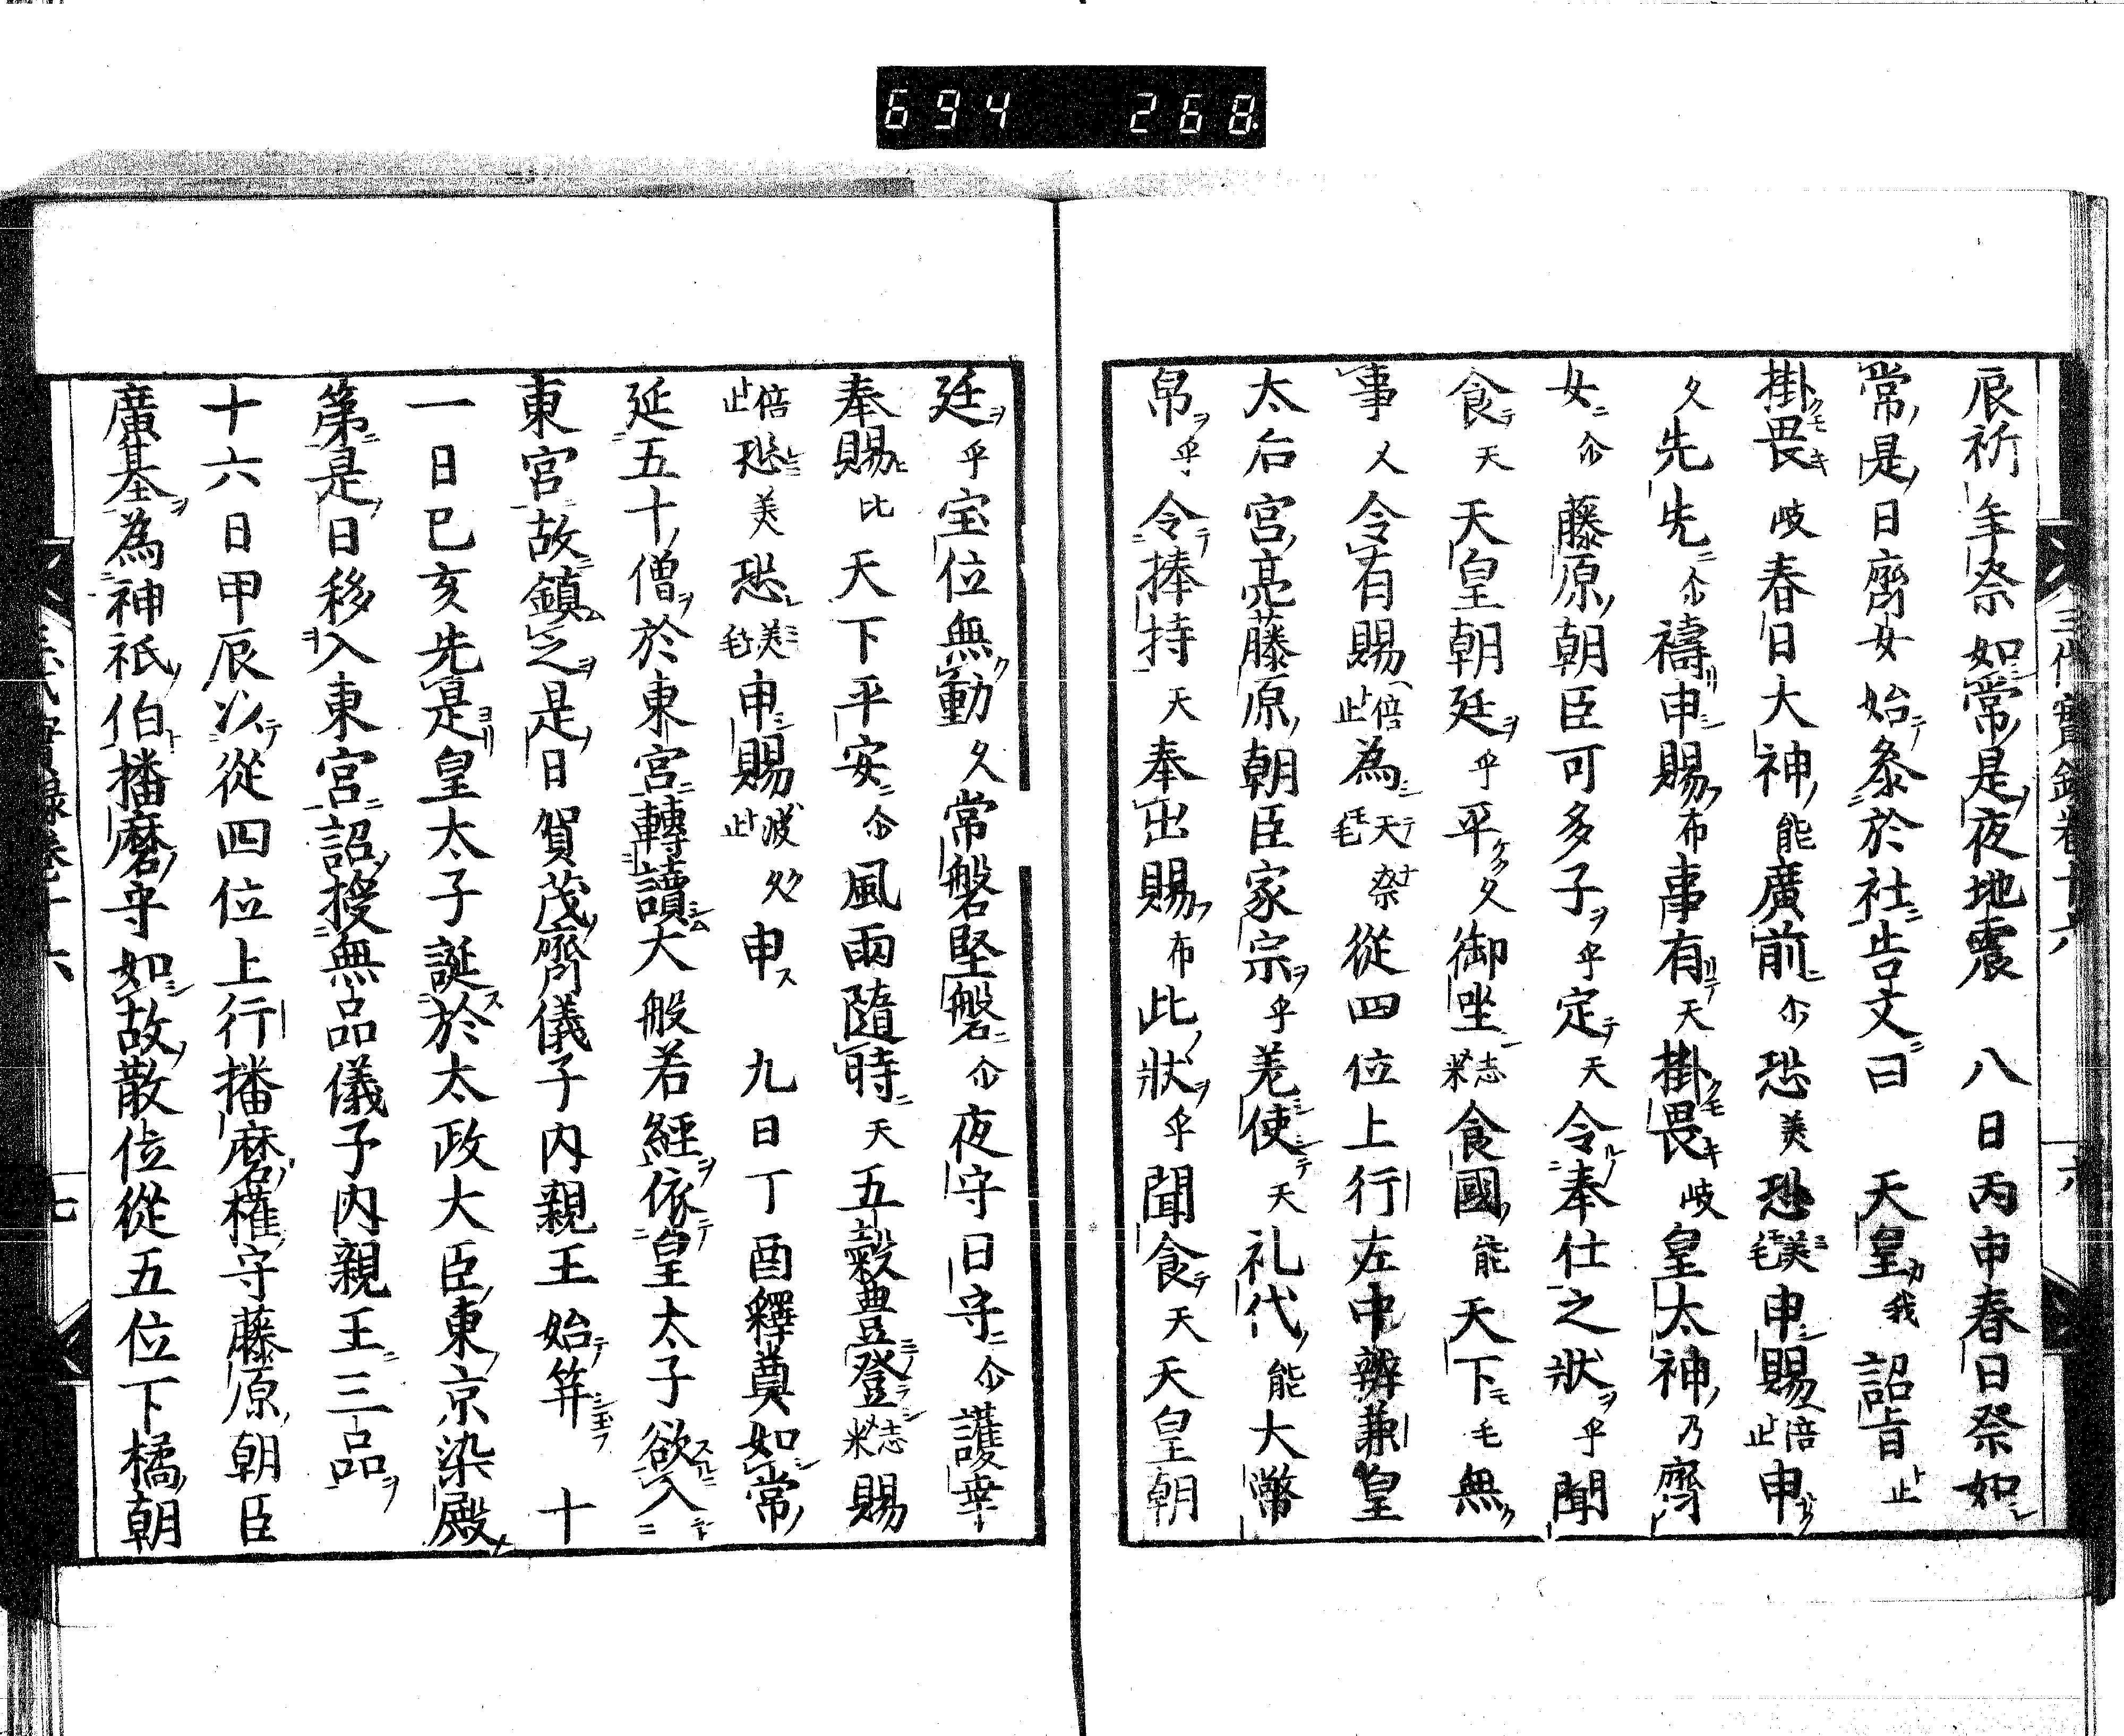 694 268
辰祈年祭如常是夜地震 八日丙申春日祭如
常是日齊女始叅於社告文曰 天皇我詔旨止
掛畏岐春日大神能廣前尒恐美恐美毛申賜倍止申
久先先尒禱申賜布事有天掛畏岐皇太神乃齊
女尒藤原朝臣可多子乎定天令奉仕之狀乎聞
食天天皇朝廷乎平久御坐志米食國能天下毛無
事久令有賜倍止為天毛奈從四位上行左中辨兼皇
太后宮亮藤原朝臣家宗乎差使天礼代能大幣
帛乎令捧持天奉出賜布此狀乎聞食天天皇朝
三代實錄卷十六 六
廷乎宝位無動久常磐堅磐尒夜守日守尒護幸
奉賜比天下平安尒風雨隨時天五穀豊登志米賜
倍止恐美恐美毛申賜波久止申 九日丁酉釋奠如常
延五十僧於東宮轉讀大般若經依皇太子欲入
東宮故鎮之是日賀茂齊儀子內親王始筓 十
一日巳亥先是皇太子誕於太政大臣東京染殿
第是日移入東宮詔授無品儀子內親王三品
十六日甲辰以從四位上行播磨權守藤原朝臣
廣基為神祇伯播磨守如故散位從五位下橘朝
七